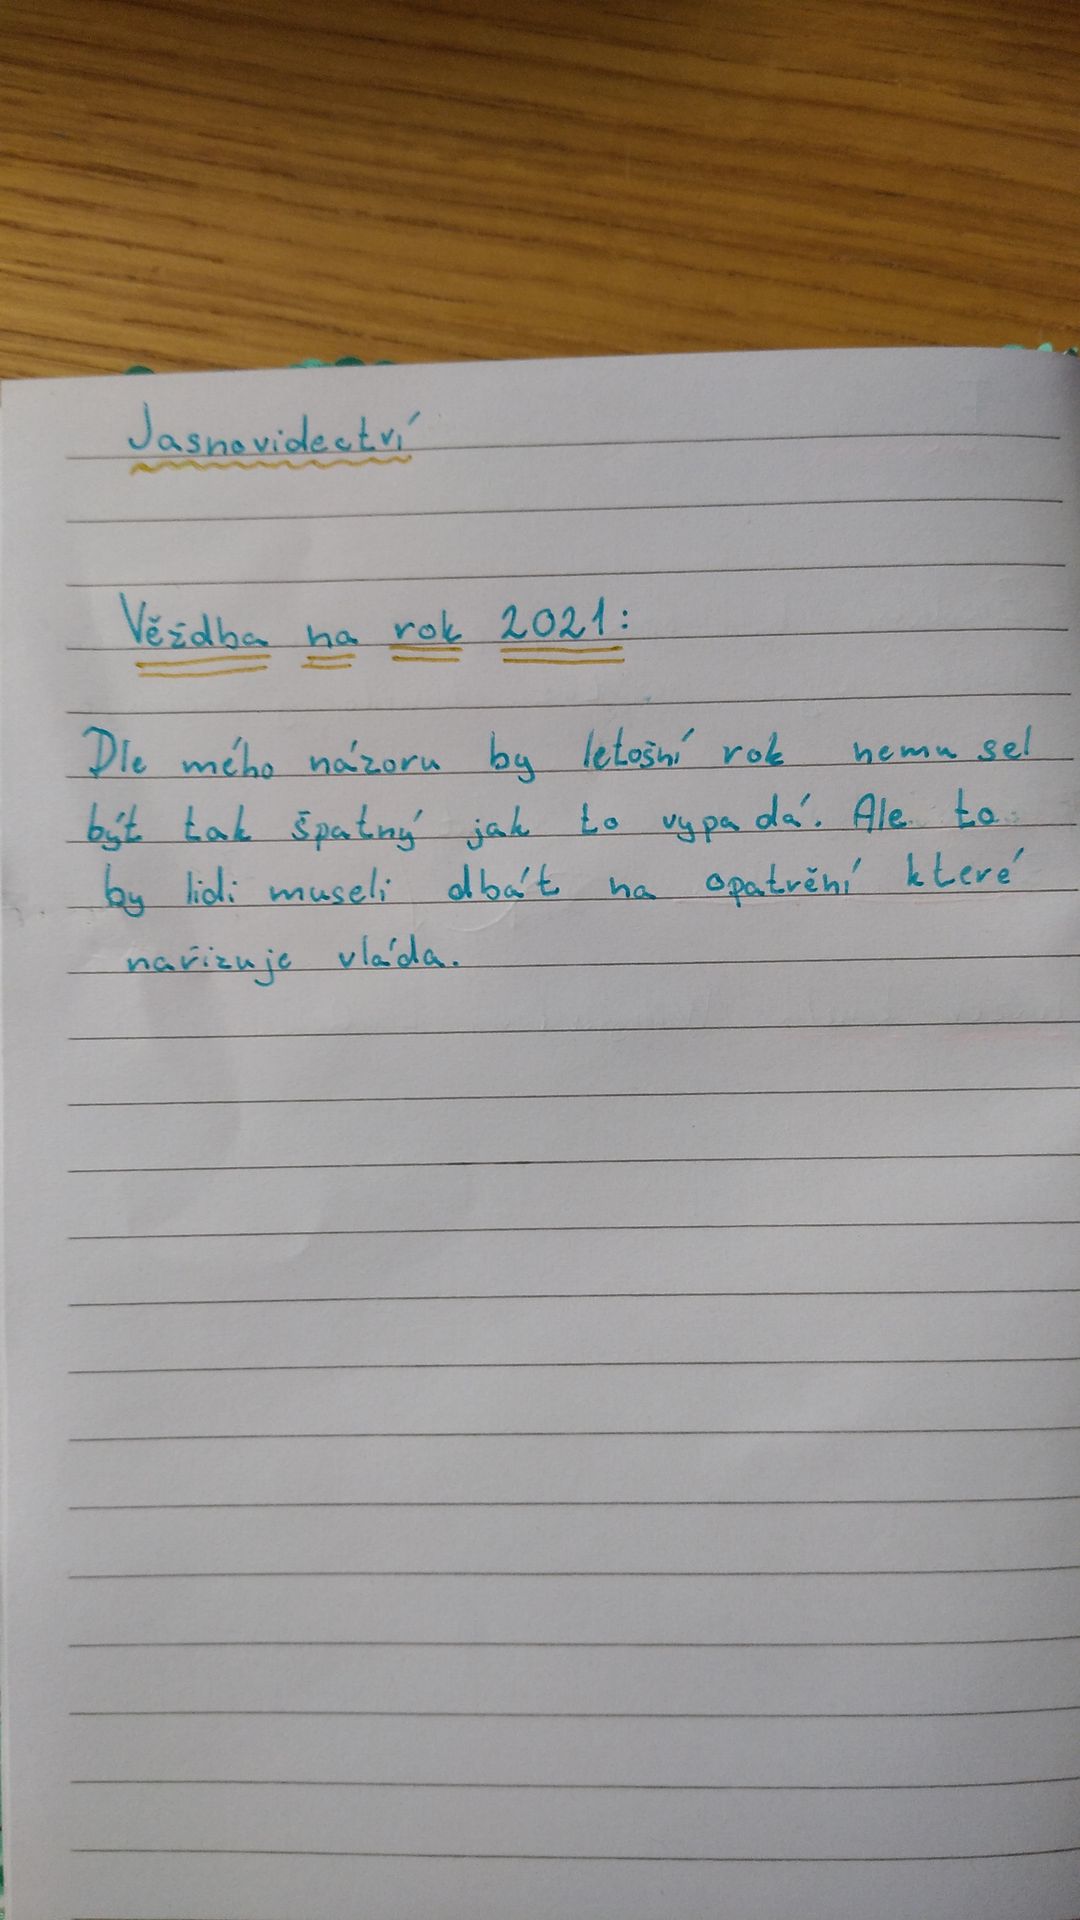 Jasnovidectví
Věždba na rok 2021:
Dle mého názoru by letošní rok nemusel
být tak špatný jak to vypadá. Ale to
by lidi museli dbát na opatrění které
nařizuje vláda.